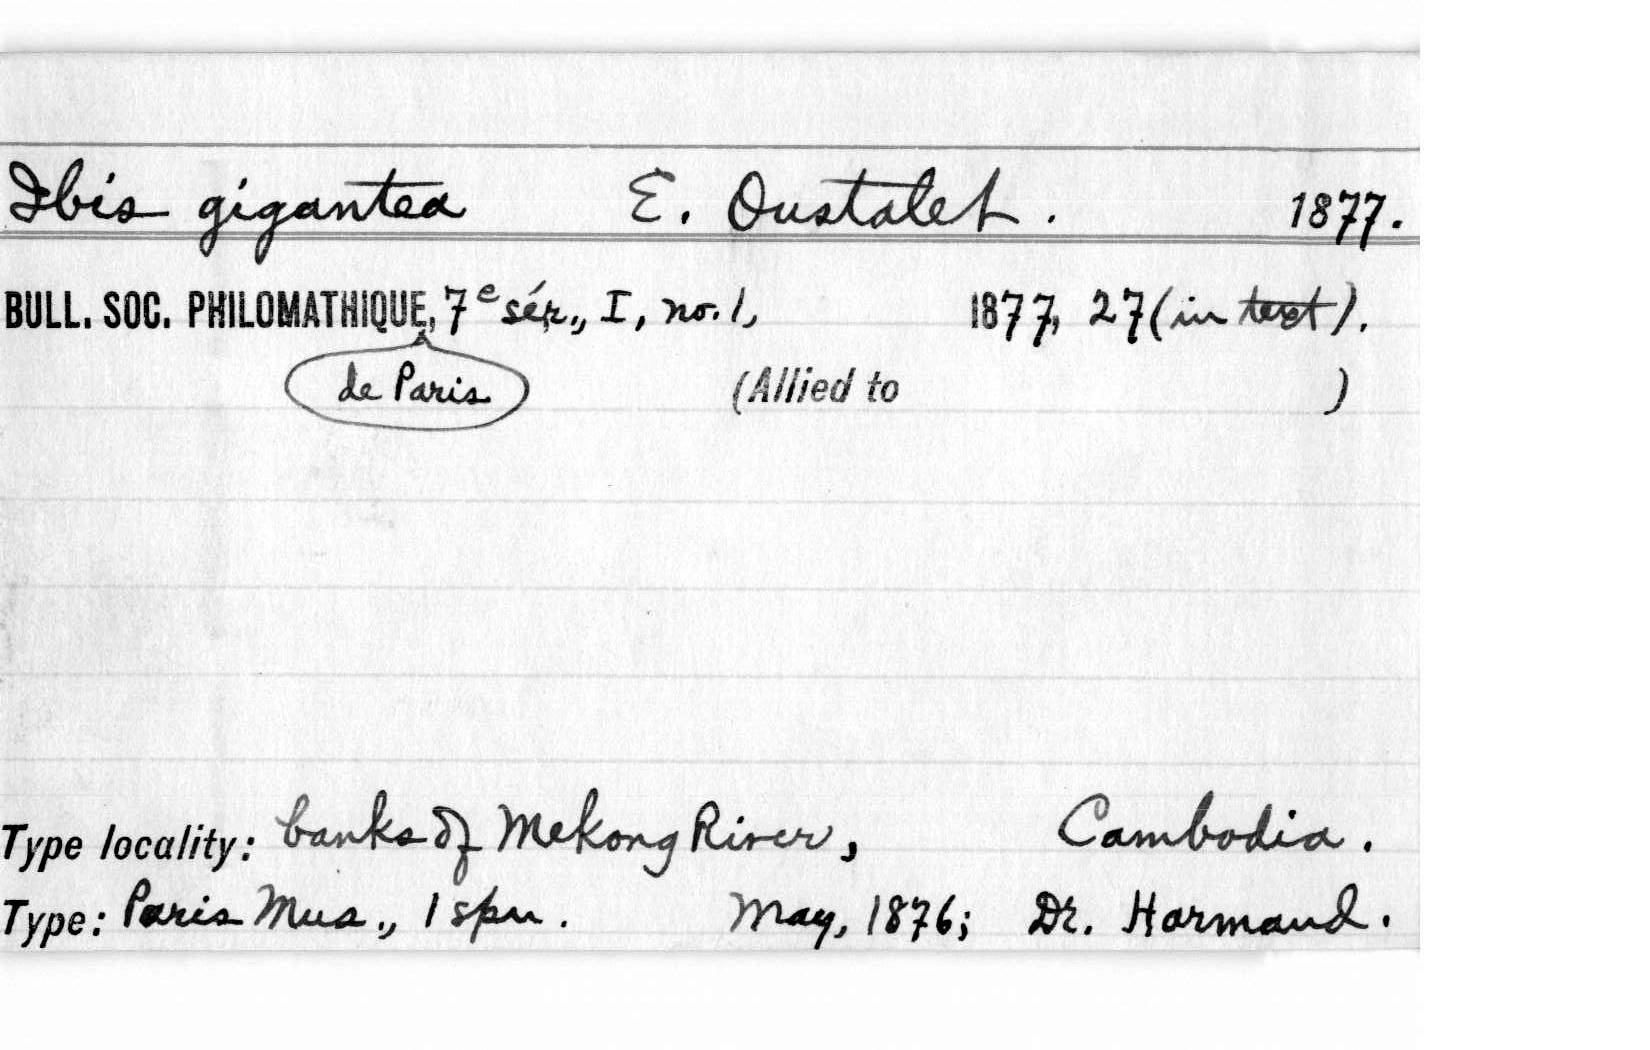 Ibis gigantea E. Oustalet. 1877.
BULL. SOC. PHILOMATHIQUE, 7e sér., I, no. 1, 1877, 27 (in text).
de Paris
(Allied to )
Type locality: banks of Mekong River, Cambodia.
Type: Paris Mus., 1 spn. May, 1876; Dr. Harmand.